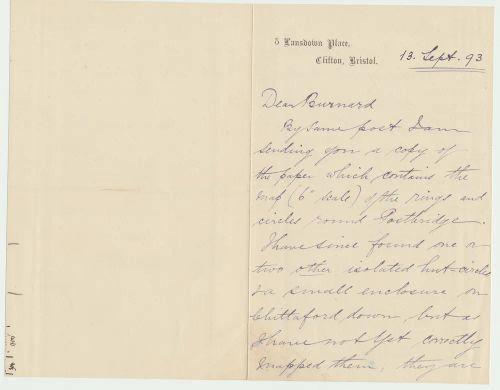 5 Lansdown Place,
Clifton, Bristol.
13. Sept. 93
Dear Burnard
By same post I am
sending you a copy of
the paper which contains the
map (6" scale) of the rings and
circles round Postbridge.
I have since found one or
two other isolated hut-circles
& a small enclosure on
Chittaford down, but as
I have not yet correctly
mapped them, they are